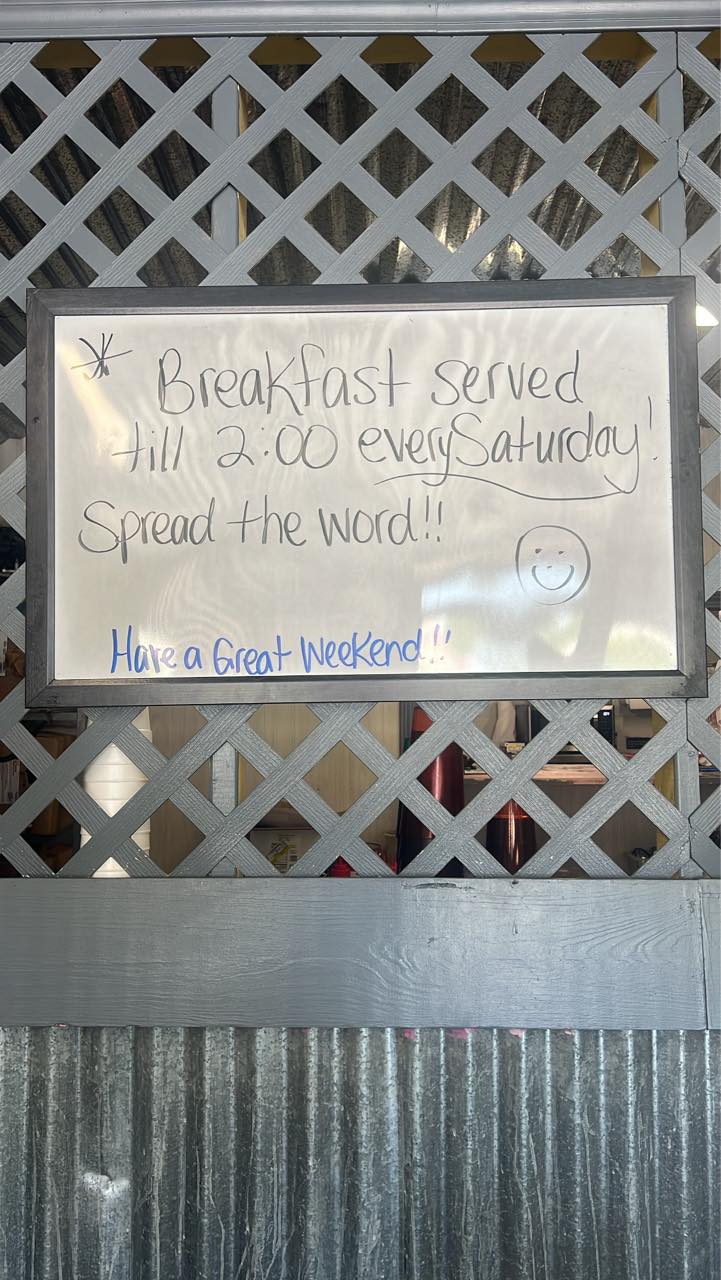 * Breakfast served
till 2:00 every Saturday!
Spread the word!!
Have a Great Weekend!!